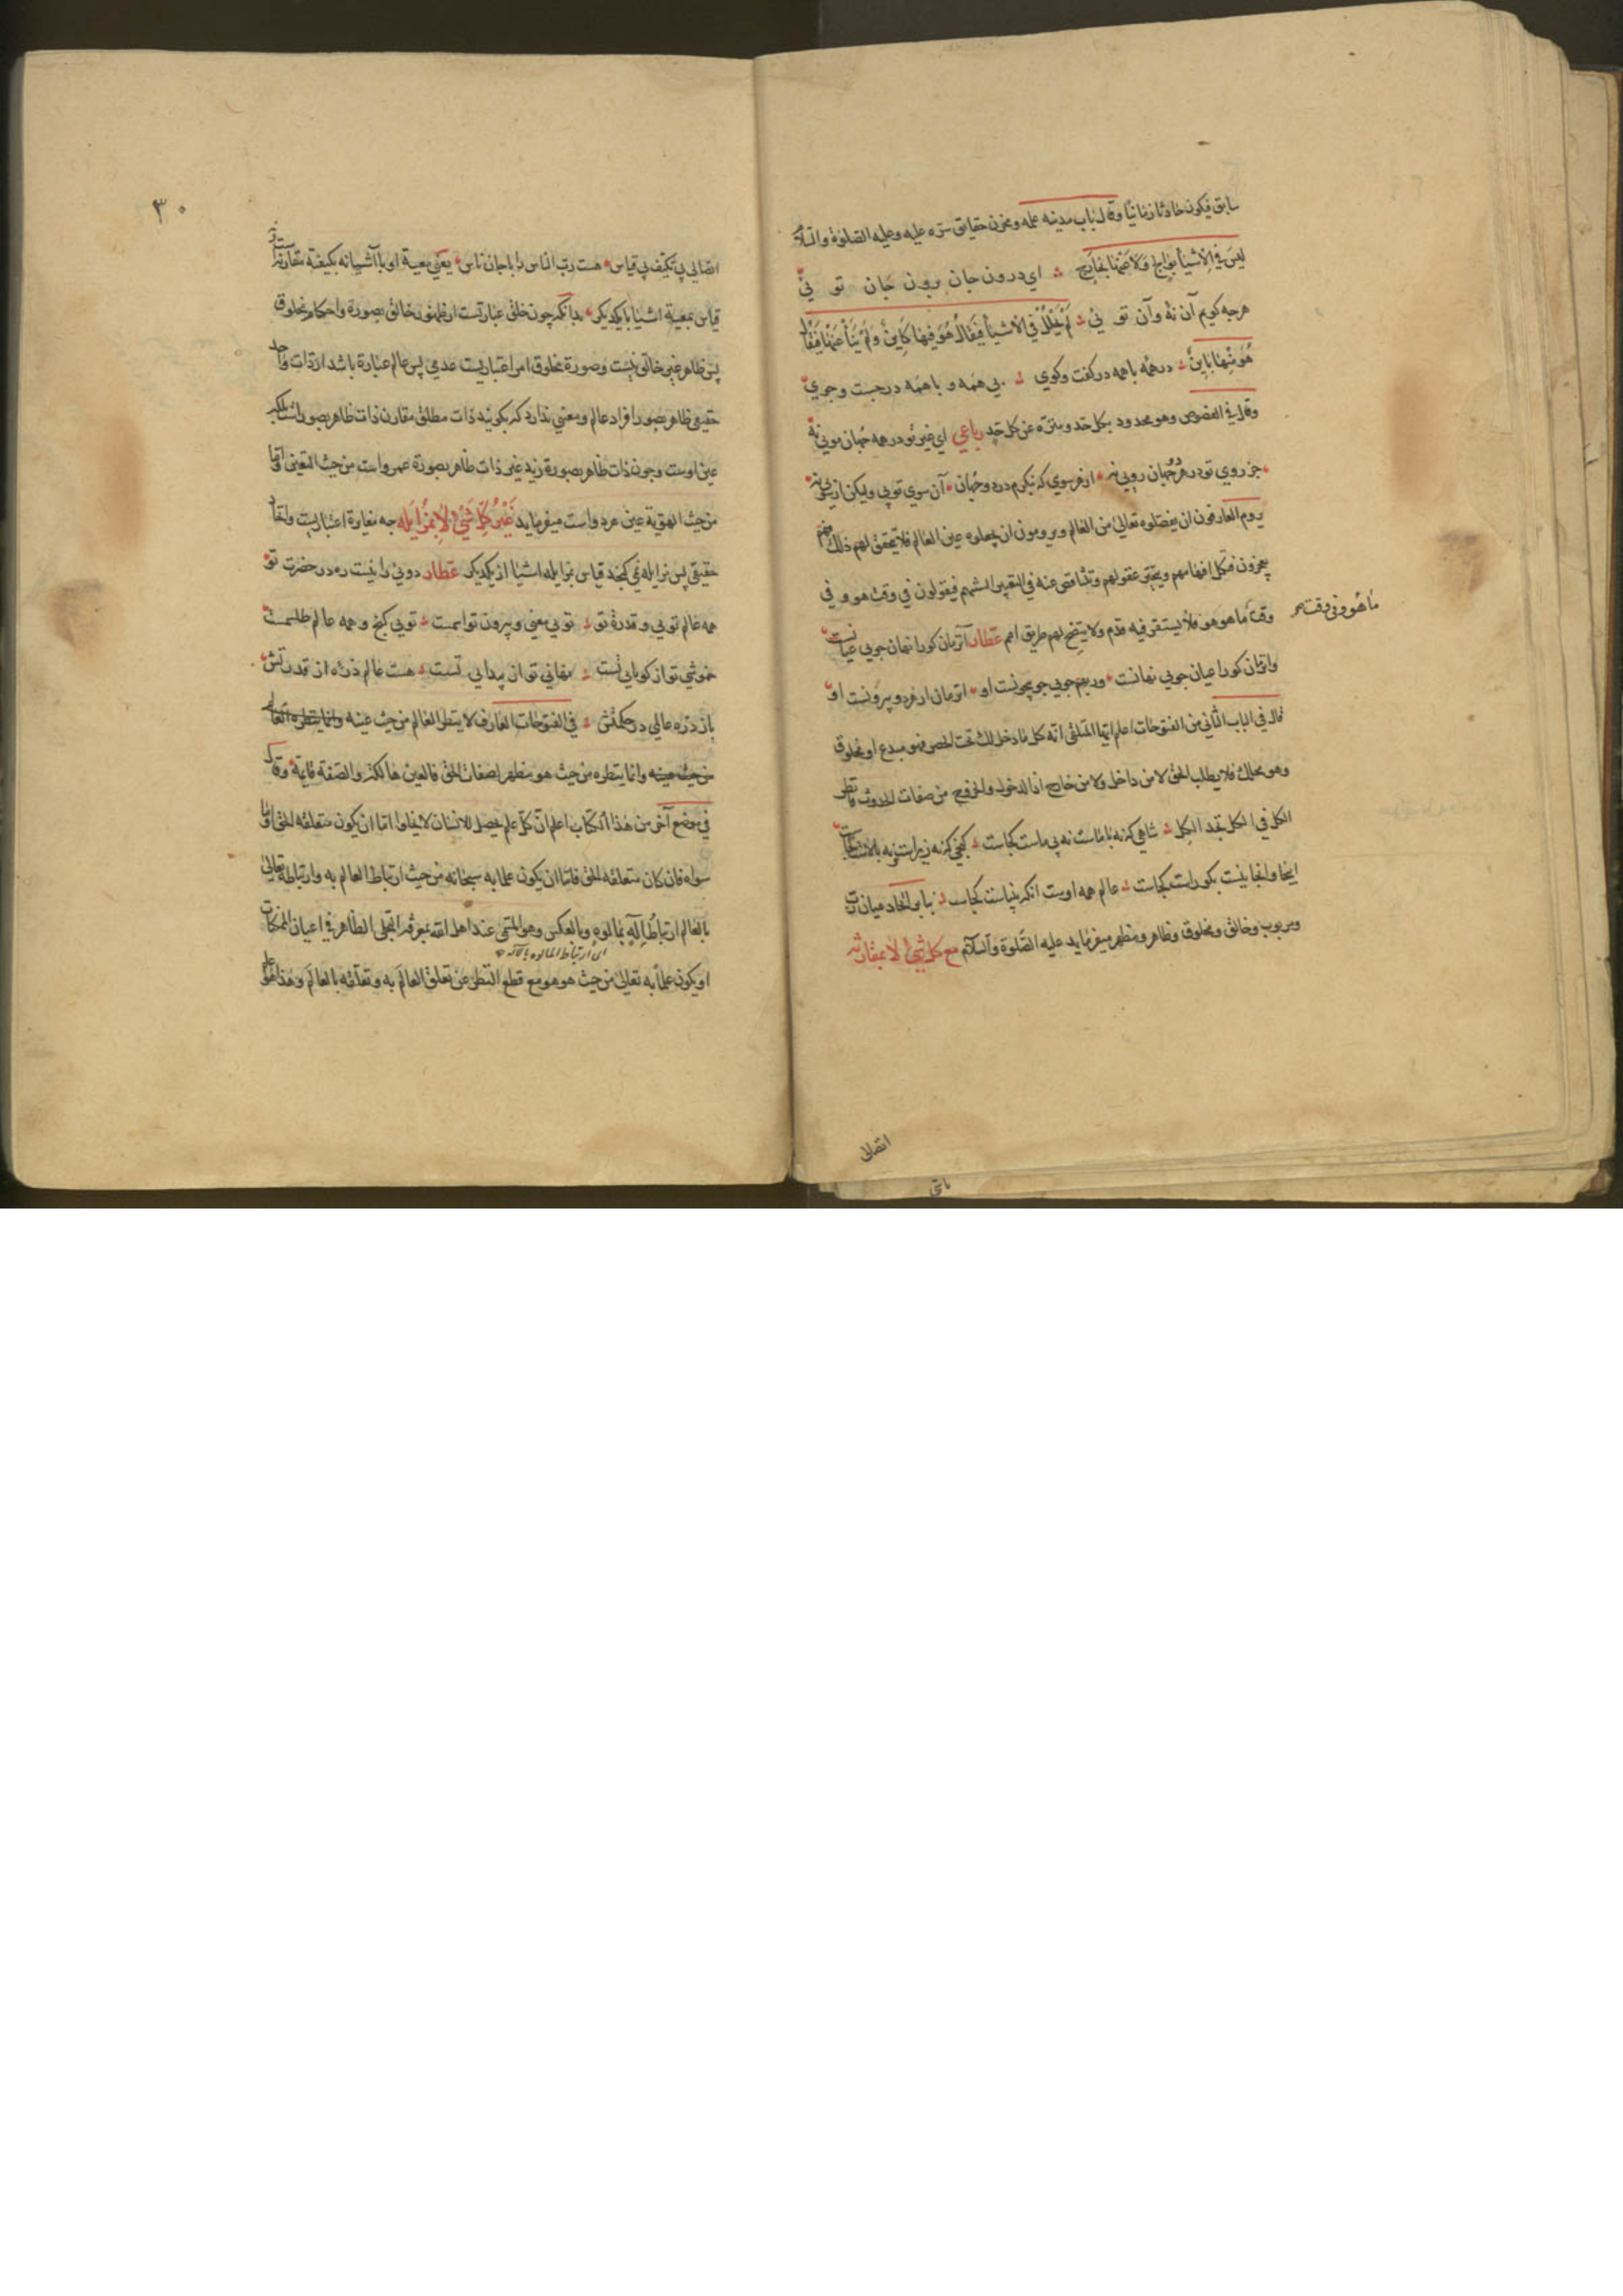 سابق فيكون حادثا زمانيا وقال باب مدينه علمه ومخزن حقايق سره عليه وعليه الصلوة والسلام
ليس في الاشياء بوالج ولا عنها بخارج اى درون جان برون جان تو نيى
هرجه كويم آن نه وآن تو نيى لم يحلل في الاشياء فيقال هو فيها كاين ولم ينأ عنها فيقال
هو منها باين در همه باهمه در كفت وكوى بى همه و با همه در جست وجوى
وقال في الفصوص وهو محدود بكل حد ومنزه عن كل حد رباعي اى غير تو در همه جهان مويى نه
جز روى تو در هر دو جهان رويى نه از هر سوى كه بنكرم در دو جهان آن سوى تويى وليكن از سويى نه
يروم العارفون ان يفصلوه تعالى من العالم ويرومون ان يجعلوه عين العالم فلا يتحقق لهم ذلك فهم
يعجزون فتكل افهامهم وتتحير عقولهم وتتناقض عنه في التعبير السنتهم فيقولون في وقت هو و في
وقت ما هو هو فلا يستقر فيه قدم ولا يتضح لهم طريق امم عطار آنزمان كورا نهان جويى عيانست
ما هو وفي وقت
وانزمان كورا عيان جويى نهانست ور بهم جويى جو بيچونست او انزمان از هر دو بيرونست او
قال في الباب الثاني من الفتوحات اعلم ايها المتلقى انه كل ما دخل لك تحت الحصر فهو مبدع او مخلوق
وهو محلك فلا يطلب الحق لا من داخل ولا من خارج اذ الدخول والخروج من صفات الحدوث فانظر
الكل في الكل تجد الكل شاهى كه نه با ماست نه بى ماست كجاست كنجى كه نه زيراست ونه بالاست كجاست
اينجا وانجا نيست بكو راست كجاست عالم همه اوست انكه پيداست كجاست بنابر اتحاد ميان رب
ومربوب وخالق ومخلوق وظاهر ومظهر ميفرمايد عليه الصلوة والسلام مع كل شئ لا بمقارنه
اتصالى
٣٠
اتصالى بى تكيف بى قياس هست رب الناس را با جان ناس يعنى معية او با آشيا نه بكيفية مقارنه است تا
قياس بمعية اشيا با يكديكر بدانكه چون خلق عبارتست از ظهور خالق بصورة واحكام مخلوق
پس ظاهر غير خالق نيست وصورة مخلوق امر اعتباريست عدمى پس عالم عبارة باشد از ذات واحد
حقيقى ظاهر بصور افراد عالم ومعنى ندارد كه بكويند ذات مطلق مقارن ذات ظاهر بصور اشياست بلكه
عين اوست وچون ذات ظاهر بصورة زيد غير ذات ظاهر بصورة عمرواست من حيث التعين اما
من حيث الهوية عين هر دواست ميفرمايد غير كل شئ لا بمزايله چه مغايرة اعتباريست واتحاد
حقيقى پس مزايله نمى كنجد قياس بمزايله اشيا از يكديكر عطار دوئى را نيست ره در حضرت تو
همه عالم تويى و قدرة تو تويى معنى وبيرون تو اسمست تويى كنج و همه عالم طلسمست
خموشى تو از كويايى تست نهانى تو از پيدايى تست هست عالم ذره از قدرتش
باز ذره عالمى در حكمتش في الفتوحات العارف لا ينظر العالم من حيث عينه وانما ينظره العالم
من حيث عينه وانما ينظره من حيث هو مظهر لصفات الحق فالعين هالكة والصفة قايمة وقال
في موضع آخر من هذا الكتاب اعلم ان كل علم يحصل للانسان لا يخلوا اما ان يكون متعلقه الحق او ما
سواه فان كان متعلقه الحق فاما ان يكون علما به سبحانه من حيث ارتباط العالم به وارتباطه تعالى
بالعالم ارتباط اله بمألوه وبالعكس وهو المسمى عند اهل الله بمعرفة التجلى الظاهر في اعيان الممكنات
اى ارتباط المالوه بالاله
او يكون علما به تعالى من حيث هو هو مع قطع النظر عن تعلق العالم به وتعلقه بالعالم وهذا هو